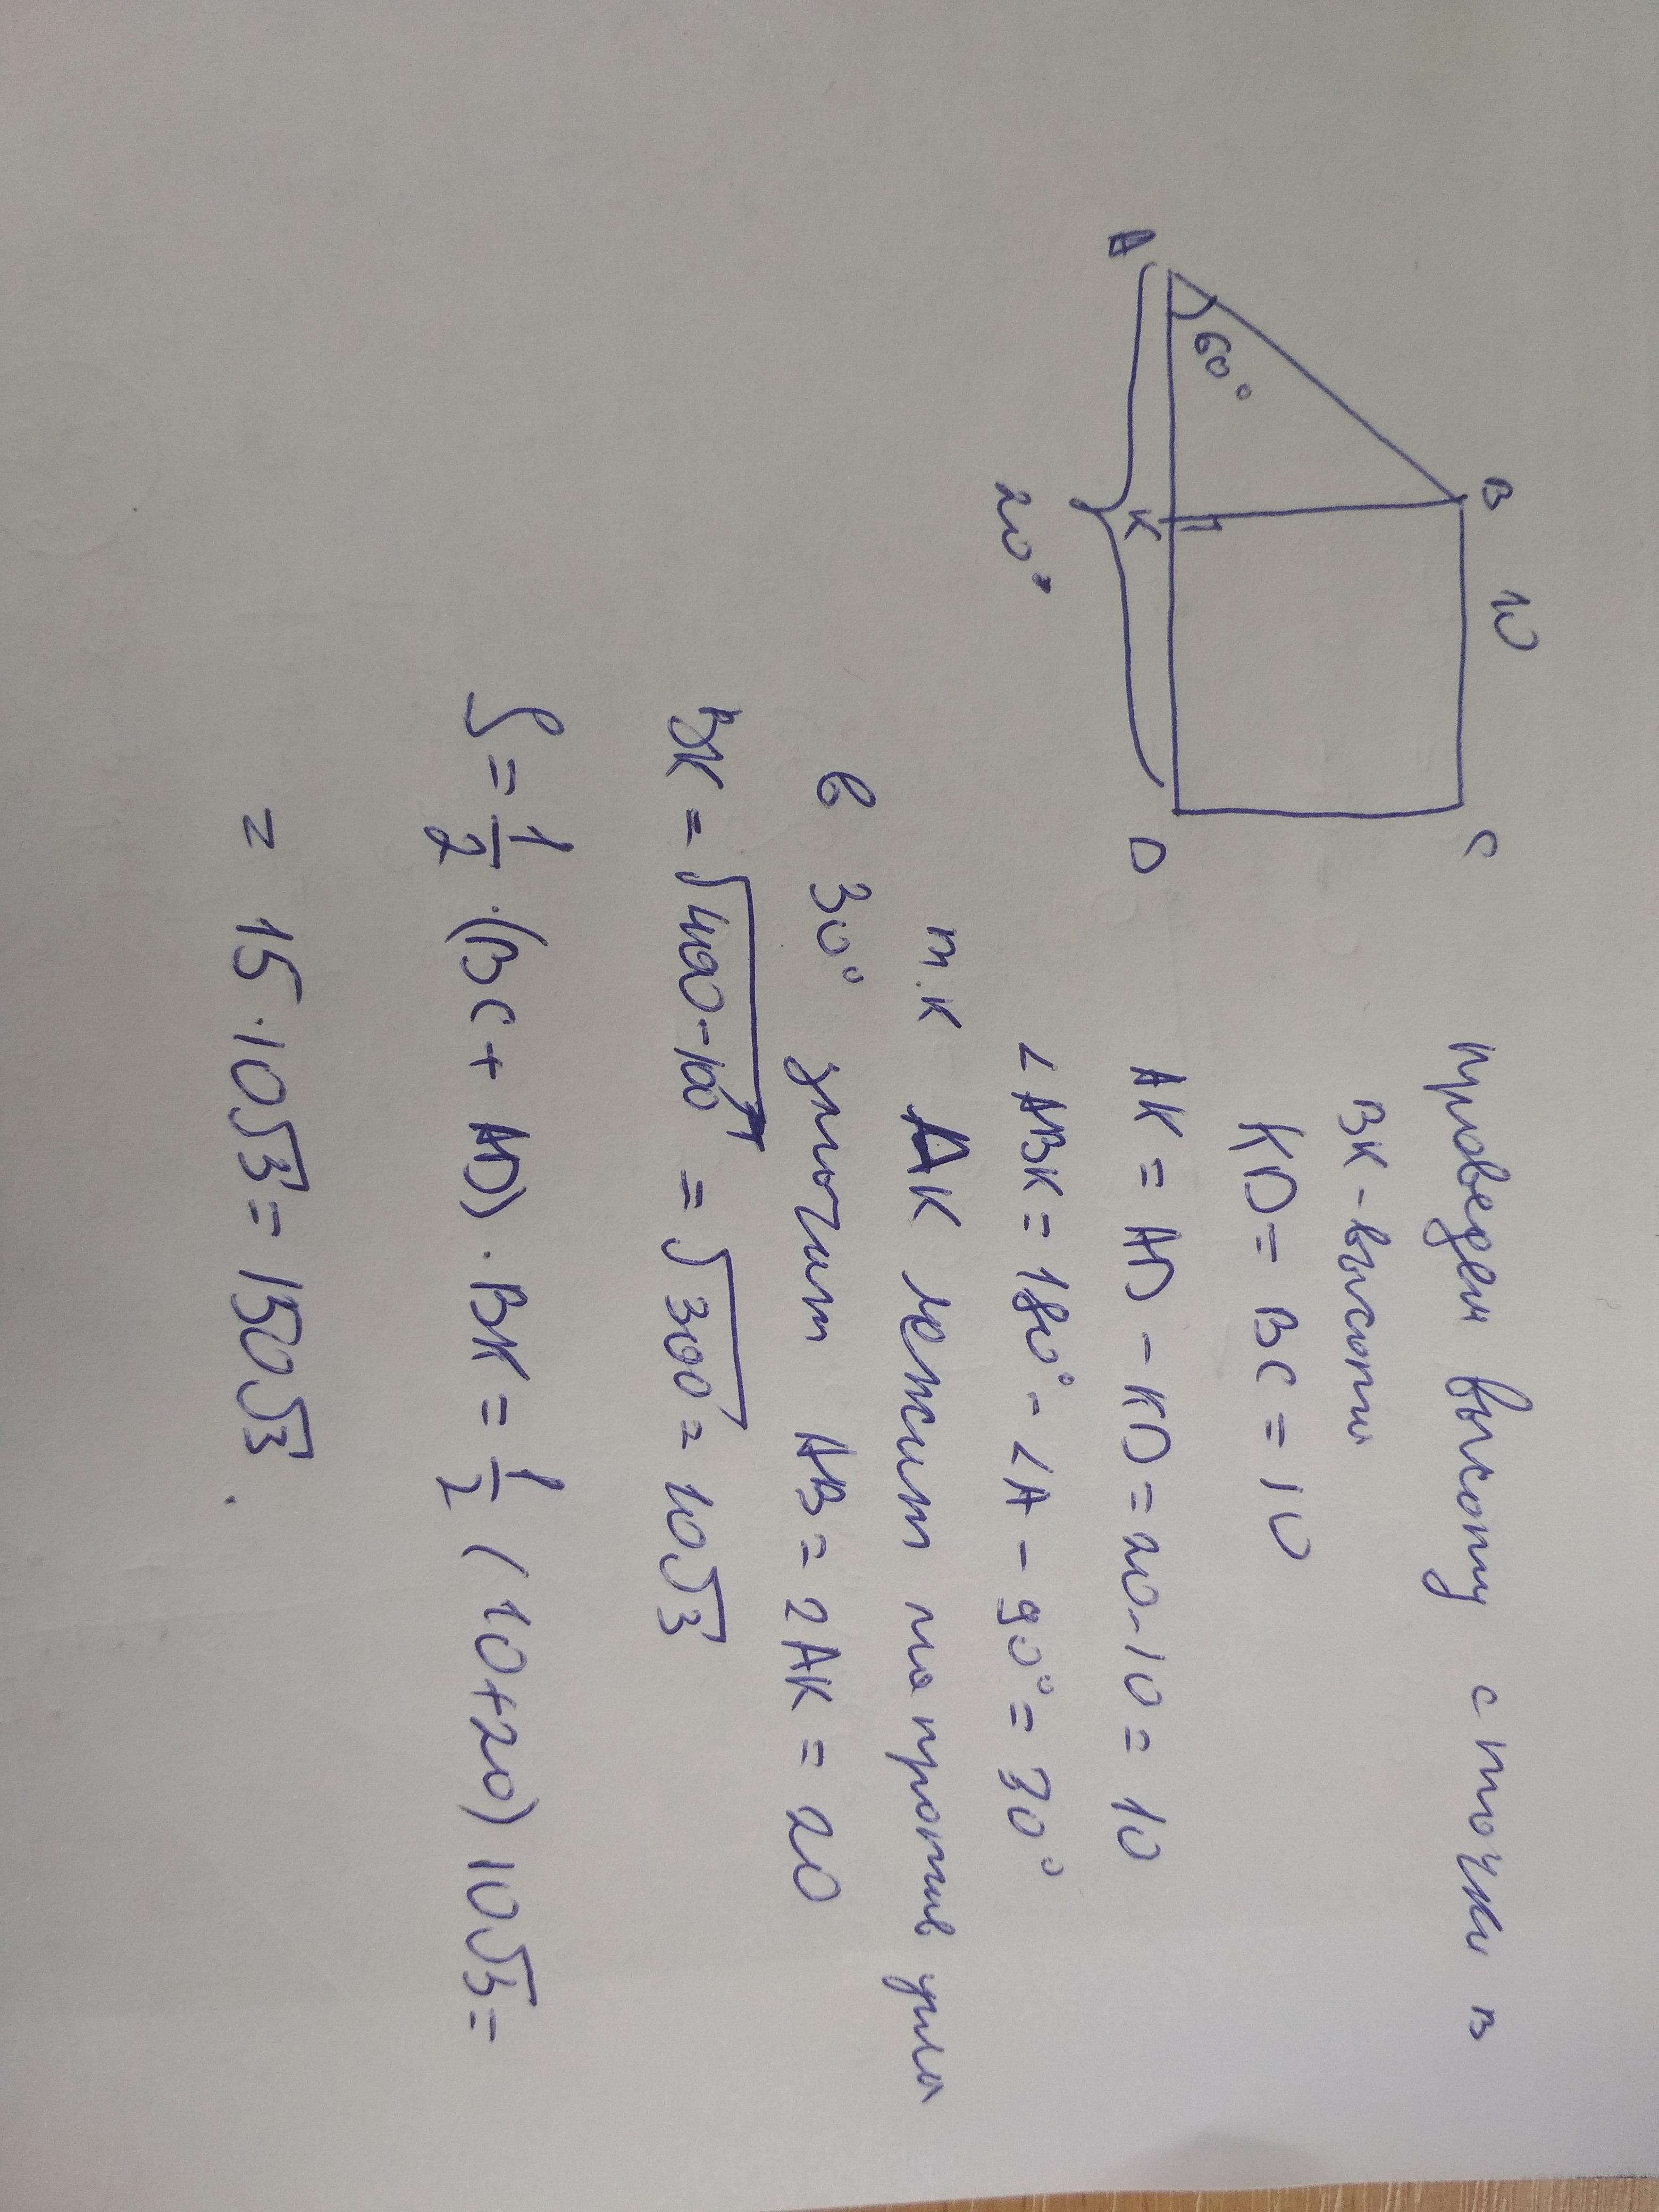 B 10 C
60°
A K D
20
проведем высоту с точки B
BK - высота
KD = BC = 10
AK = AD - KD = 20-10 = 10
∠ABK = 180° - ∠A - 90° = 30°
т.к AK лежит на против угла
в 30° значит AB = 2AK = 20
BK = √400-100 = √300 = 10√3
S = 1/2 · (BC + AD) · BK = 1/2 (10+20) 10√3 =
= 15·10√3 = 150√3.